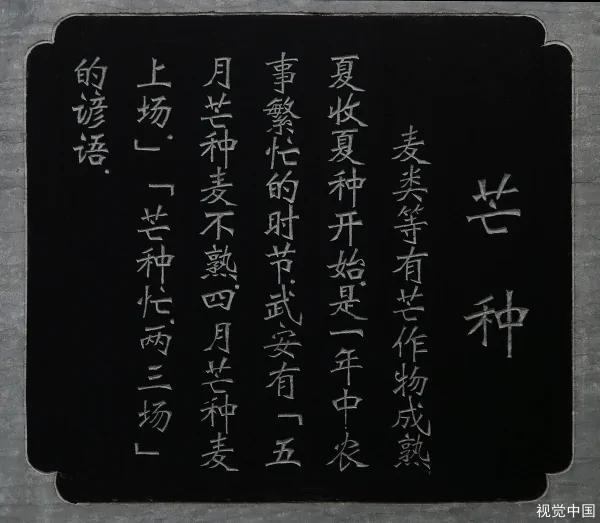 芒种
麦类等有芒作物成熟
夏收夏种开始.是一年中农
事繁忙的时节.武安有「五
月芒种麦不熟.四月芒种麦
上场.」「芒种忙.两三场」
的谚语.
视觉中国